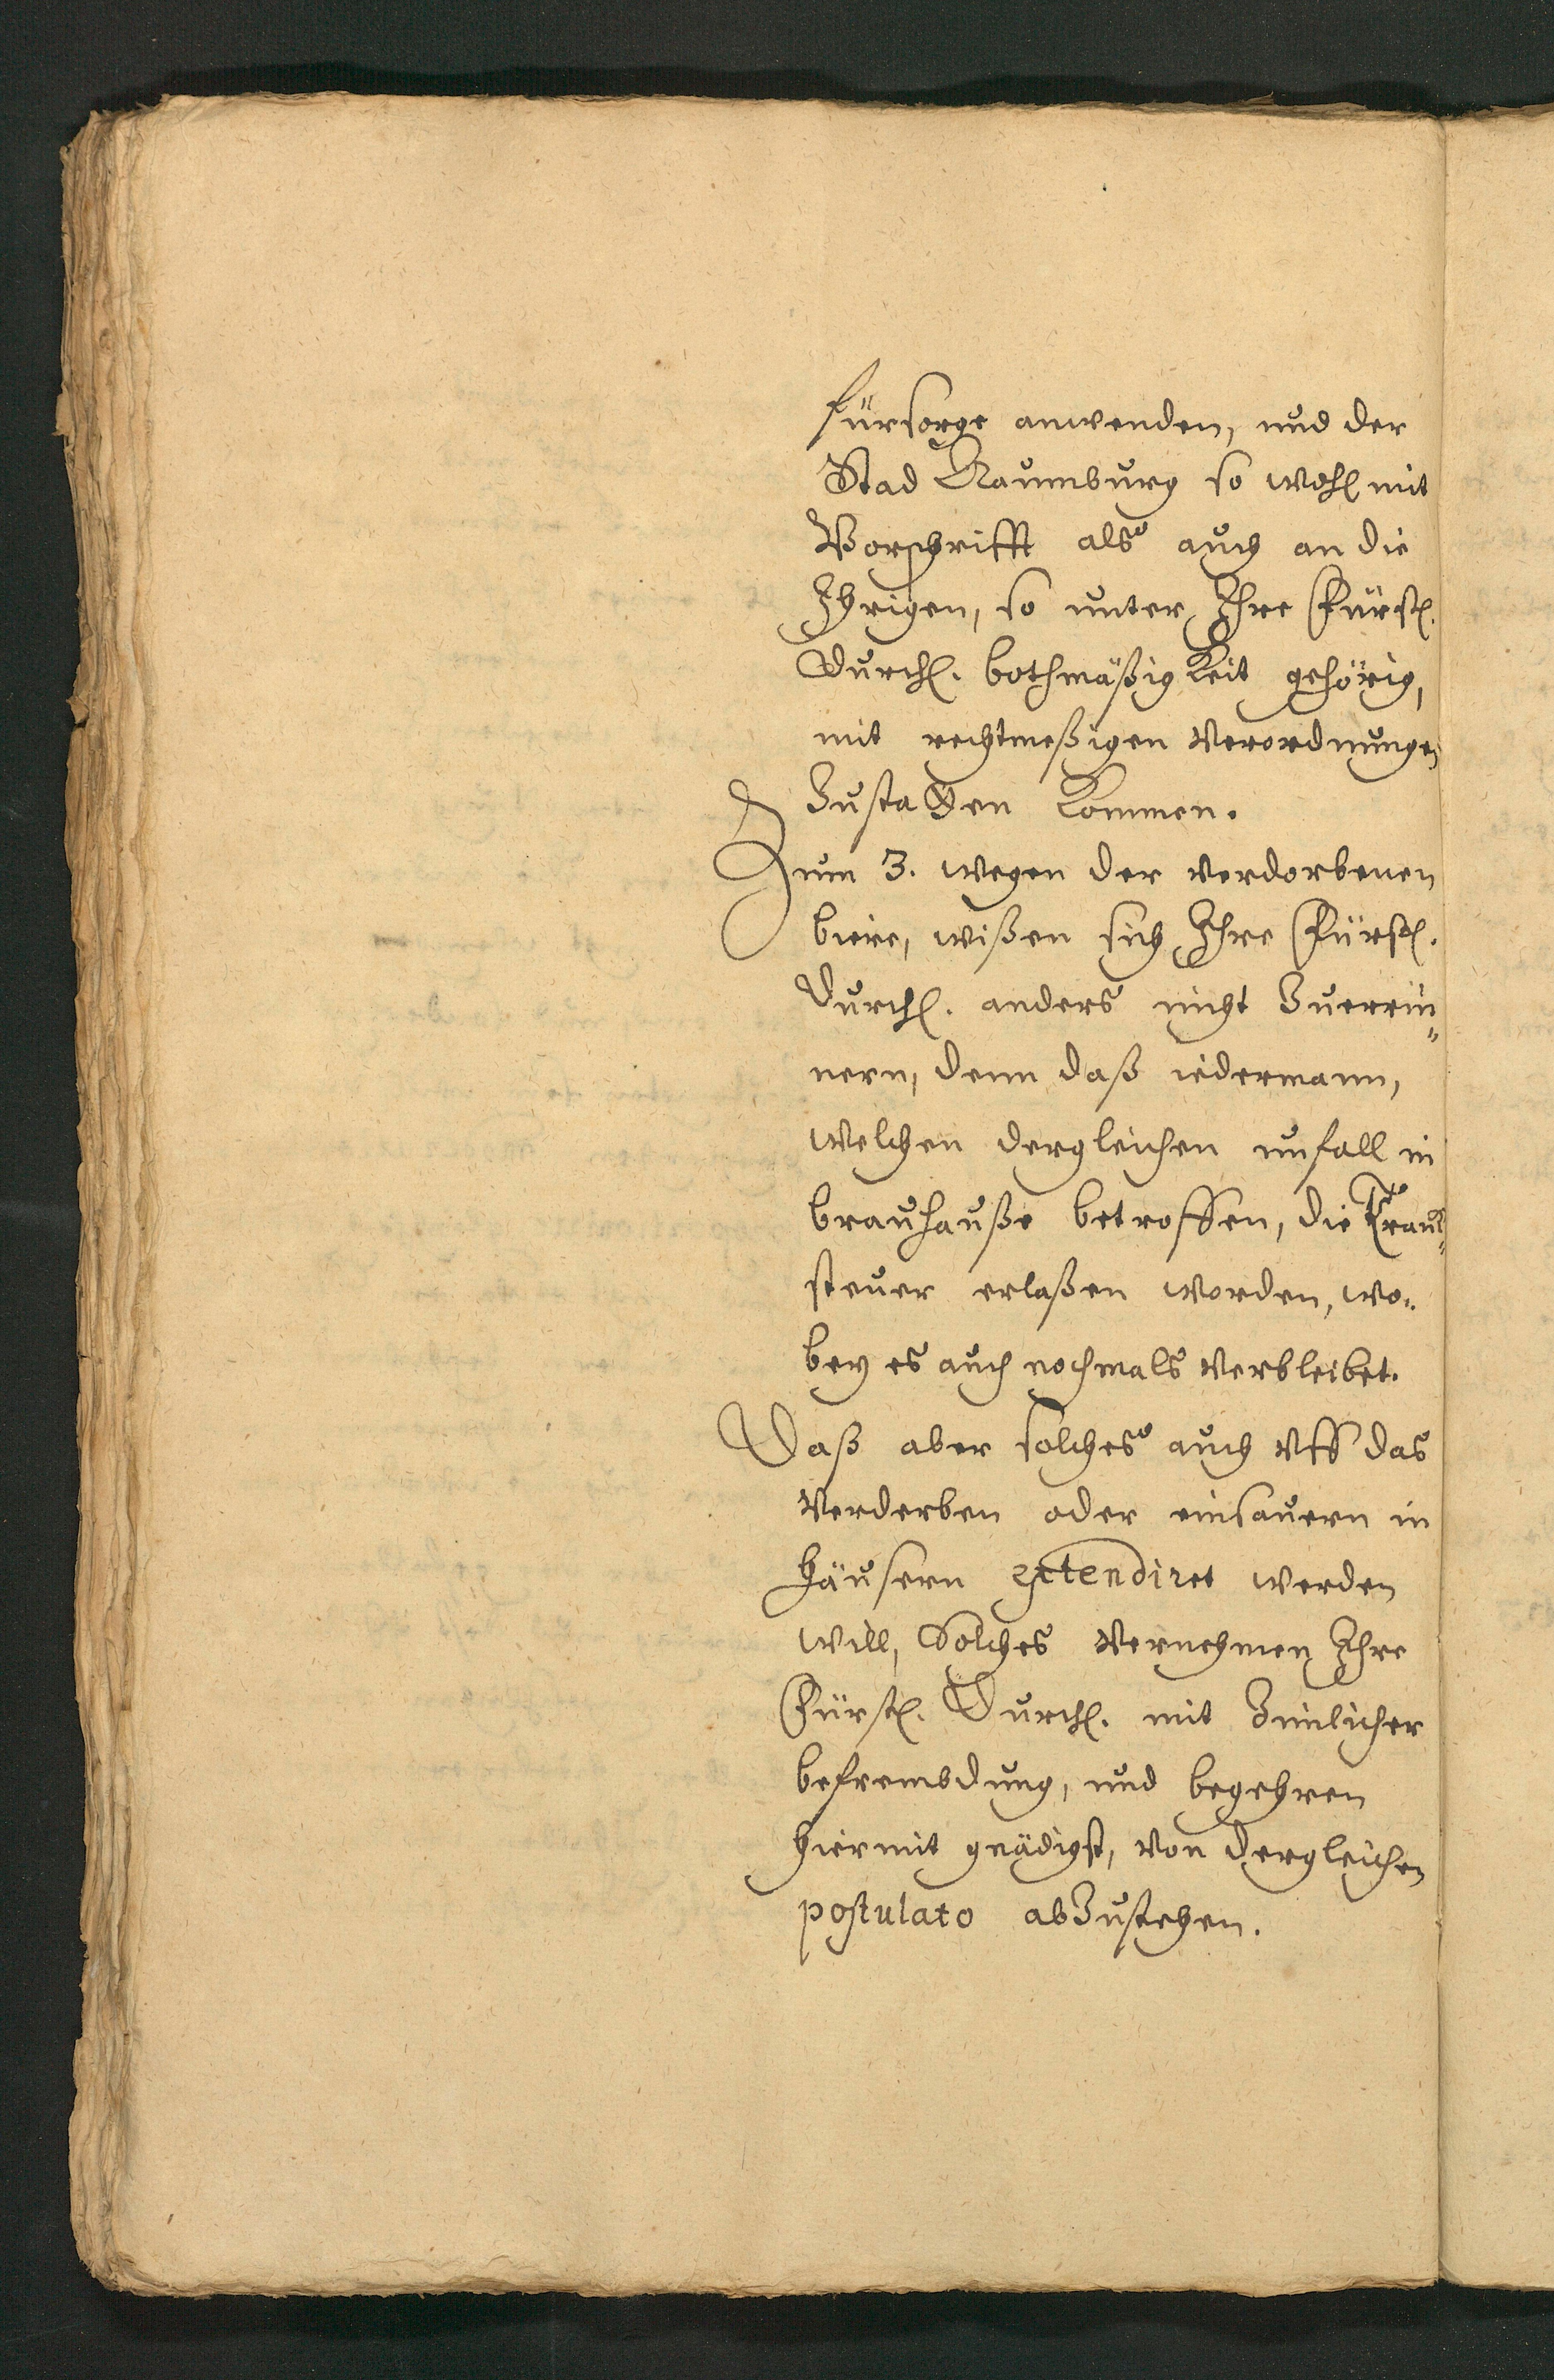 fürsorge anwenden, und der
Stad Naumburg so wohl mit
Vorschrifft als auch an die
Ihrigen, so unter Ihre Fürstl.
Durchl. bothmäßigkeit gehörig,
mit rechtmeßigen Verordnungen
Zustatten kommen.
Zum 3. wegen der verdorbenen
biere, wißen sich Ihre Fürstl.
Durchl. anders nicht Zuerrin-
nern, denn daß iedermann,
welchen dergleichen unfall in
brauhauße betroffen, die Tranck-
steuer erlaßen worden, wo-
bey es auch nochmals verbleibet.
Daß aber solches auch uff das
verderben oder einsauern in
häusern extendiret werden
will, Solches vernehmen Ihre
Fürstl. Durchl. mit Zimlicher
befrembdung, und begehren
hiermit gnädigst, von dergleichen
postulato abZustehen.